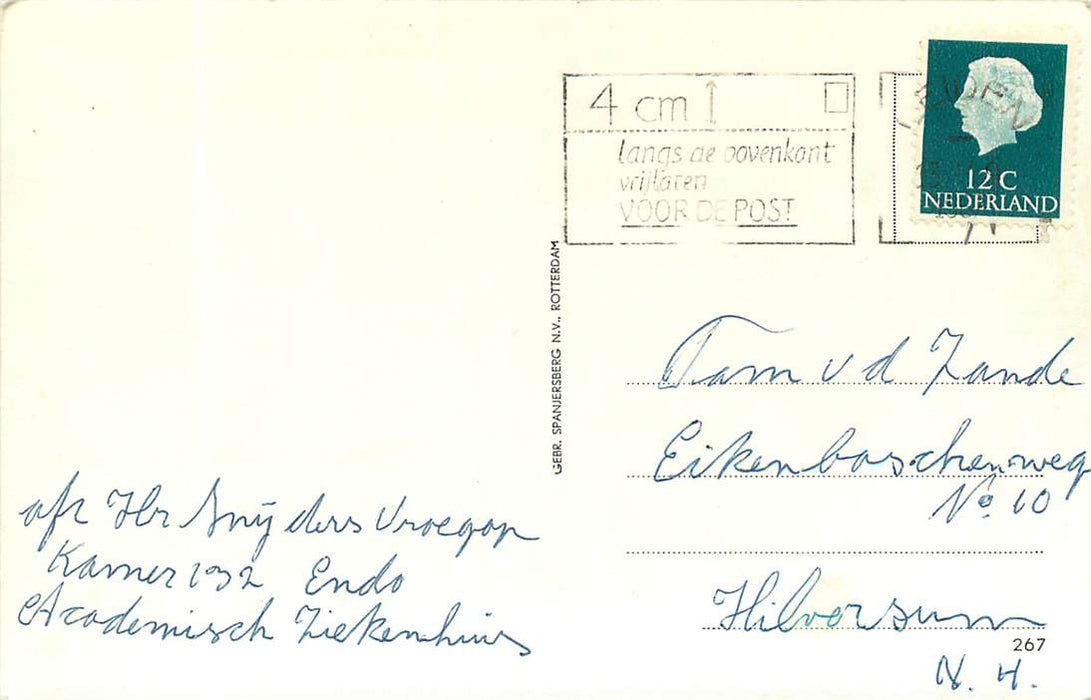 4 cm
langs de bovenkant
vrijlaten
VOOR DE POST
12 C
NEDERLAND
GEBR. SPANJERSBERG N.V., ROTTERDAM
Fam v d Zande
Eikenboschenweg
No 10
Hilversum
267
N. H.
afz Hr Snijders Vroegop
Kamer 132 Endo
Academisch Ziekenhuis